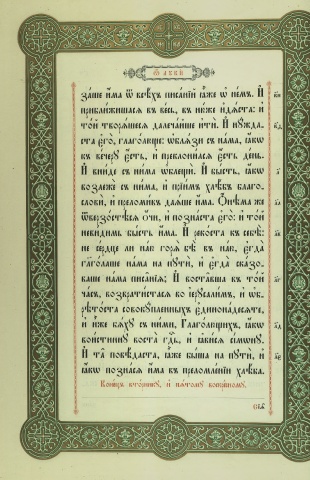 Ѿ лꙋкѝ
за́ше и҆́ма ѿ всѣ́хъ писа́нїй ꙗ҆̀же ѡ҆ не́мъ. И҆
прибли́жишася въ ве́сь, въ ню́же и҆дѧ́ста: и҆
то́й творѧ́шеся далеча́йше и҆тѝ. И҆ нꙋ́жда-
ста є҆го̀, глаго́люще: ѡ҆блѧ́зи съ на́ма, ꙗ҆́кѡ
къ ве́черꙋ є҆́сть, и҆ преклони́лся є҆́сть де́нь.
И҆ вни́де съ ни́ма ѡ҆блещѝ. И҆ бы́сть, ꙗ҆́кѡ
возлежѐ съ ни́ма, и҆ прїи́мъ хлѣ́бъ благо-
словѝ, и҆ преломи́въ даѧ́ше и҆́ма. Ѻ҆нѣ́ма же
ѿверзо́стѣся ѻ҆́чи, и҆ позна́ста є҆го̀: и҆ то́й
неви́димь бы́сть и҆́ма. И҆ реко́ста къ себѣ̀:
не се́рдце ли на́ю горѧ̀ бѣ̀ въ на́ю, є҆гда̀
гл҃го́лаше на́ма на пꙋтѝ, и҆ є҆гда̀ ска́зо-
ваше на́ма писа̑нїя; И҆ воста́вша въ то́й
ча́съ, возврати́стася во і҆ерꙋсали́мъ, и҆ ѡ҆б-
рѣто́ста совокꙋ́пленныхъ є҆динона́десяте,
и҆ и҆̀же бѧ́хꙋ съ ни́ми, Глаго́лющихъ, ꙗ҆́кѡ
вои́стиннꙋ воста̀ гдⷭ҇ь, и҆ ꙗ҆ви́ся сі́мѡнꙋ.
И҆ та̑ повѣ́даста, ꙗ҆̀же бы́ша на пꙋтѝ, и҆
ꙗ҆́кѡ позна́ся и҆́ма въ преломле́нїи хлѣ́ба.
Коне́цъ вто́рникꙋ, и҆ пѧ́томꙋ воскре́сномꙋ.